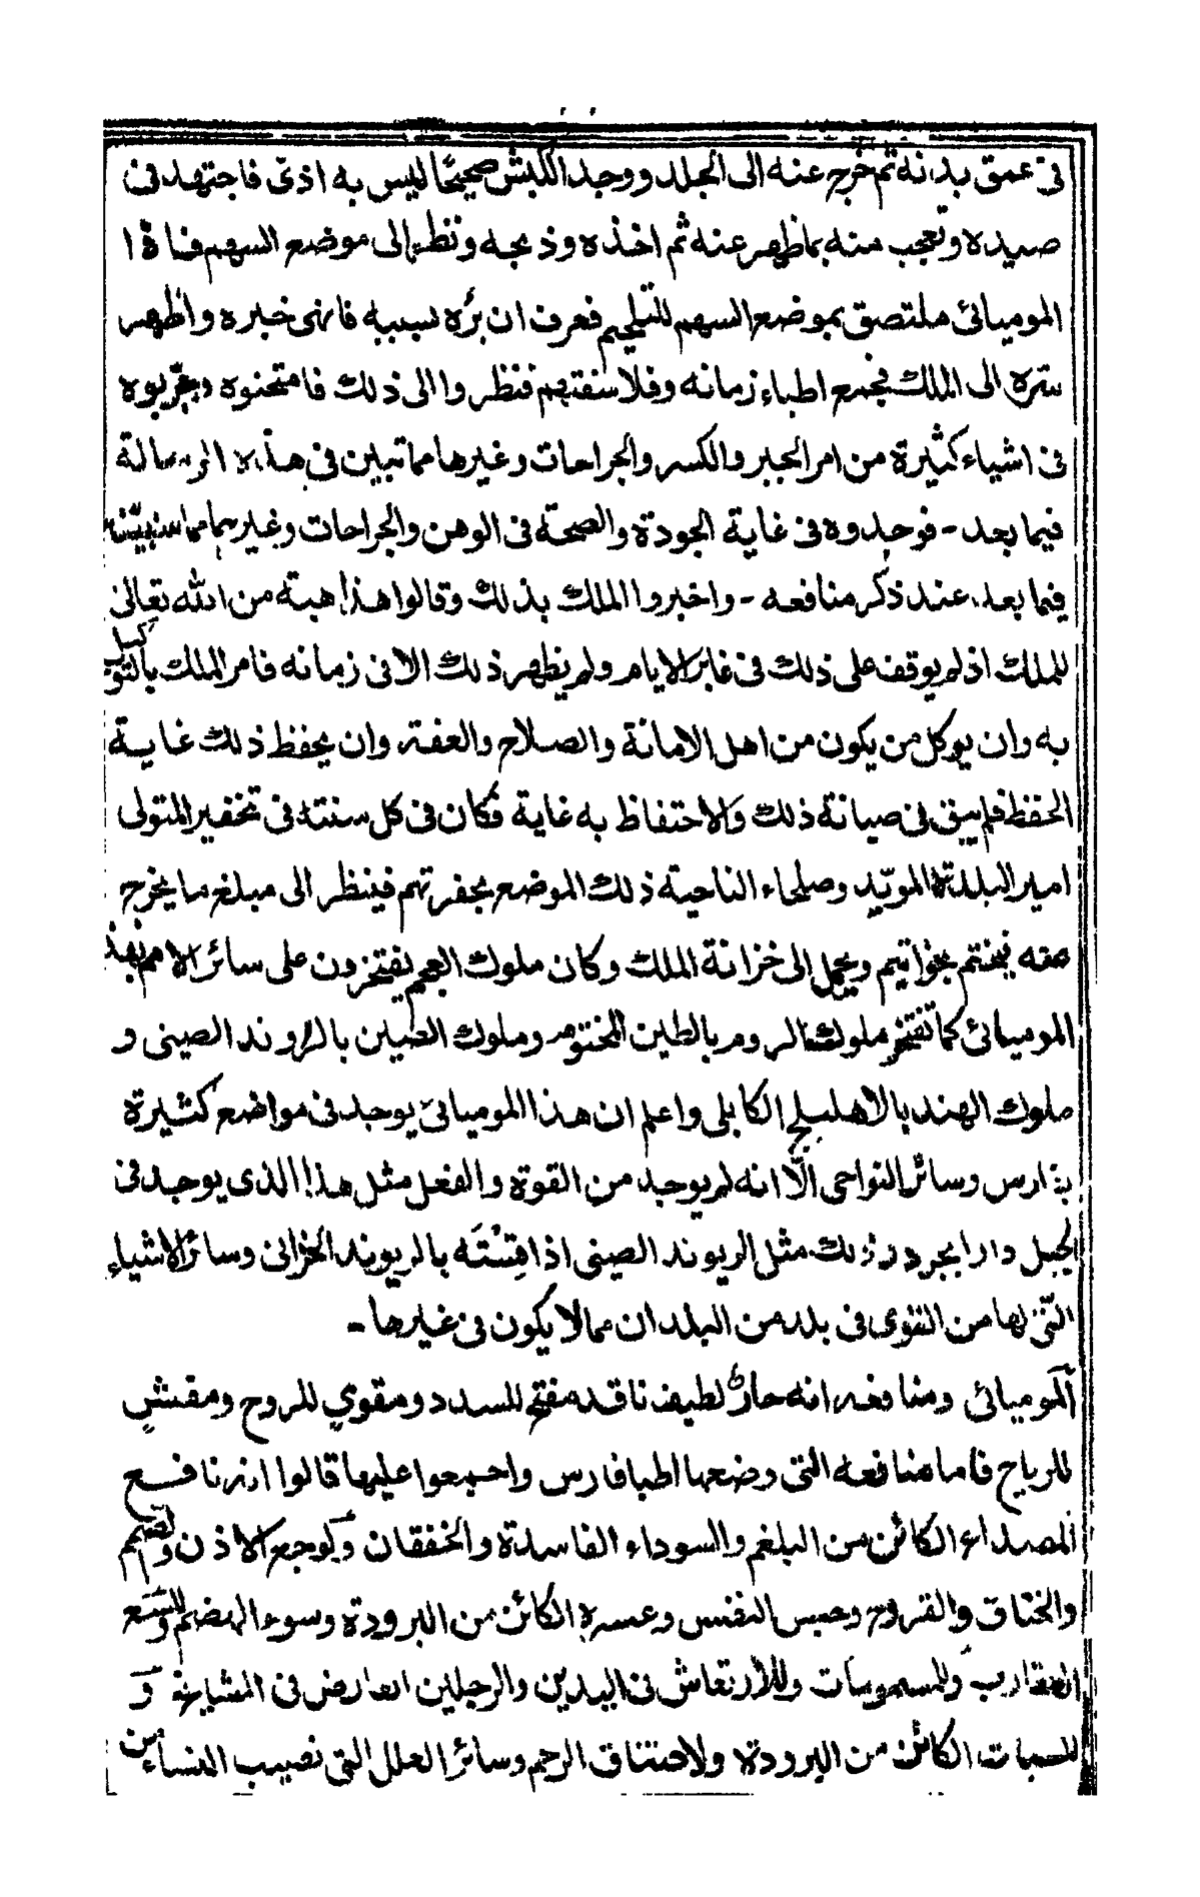 فى عمق بدنه ثم خرج عنه الى الجلد ووجد الكبش صحيحًا ليس به اذىً فاجتهد فى
صيده وتعجب منه بماظهر عنه ثم اخذه وذبحه ونظر الى موضع السهم فاذا
الموميائى ملتصق بموضع السهم للتلحيم فعرف ان برُه بسببه فانهى خبره واظهر
ستره الى الملك فجمع اطباء زمانه وفلاسفتهم فنظروا الى ذلك فامتحنوه وجرّبوه
فى اشياء كثيرة من امر الجبر والكسر والجراحات وغيرها مما تبين فى هذه الرسالة
فيما بعد - فوجدوه فى غاية الجودة والصحته فى الوهن والجراحات وغيرهما مما سنبيّنه
فيما بعد عند ذكر منافعه - واخبروا الملك بذلك وقالوا هذا هبته من الله تعالىٰ
للملك اذ لم يوقف على ذلك فى غابر الايام ولم يظهر ذلك الا فى زمانه فامر الملك بالتوكيل
به وان يوكل من يكون من اهل الامانة والصلاح والعفة وان يحفظ ذلك غاية
الحفظ فلم يبق فى صيانة ذلك والاحتفاظ به غاية فكان فى كل سنته فى تخفير المتولى
امير البلدة الموبّد وصلحاء الناحيته ذلك الموضع بحفرتهم فينظر الى مبلغ ما يخرج
منه فيختم بخواتيم ويحمل الى خزانة الملك وكان ملوك العجم يفتخرون على سائر الامم بهذا
الموميائى كما تفتخر ملوك الروم بالطين المختوم وملوك الصين بالراوند الصينى و
ملوك الهند بالاهليلج الكابلى واعلم ان هذا الموميائى يوجد فى مواضع كثيرة
بفارس وسائر النواحى الّا انه لم يوجد من القوة والفعل مثل هذا الذى يوجد فى
الجبل دارابجرد وذلك مثل الريوند الصينى اذا قِسْتَه بالريوند الخرانى وسائر الاشياء
التّى لها من القوى فى بلد من البلدان مما لا يكون فى غيرها -
الموميائى ومنافعه انه حارٌ لطيف ناقد مفتح للسدد ومقوي للروح ومفشٍ
للرياح فاما منافعه التى وضعها اطبا فارس واجمعوا عليها قالوا انه نافع
لصداع الكائن من البلغم والسوداء الفاسدة والخفقان ولوجع الاذن ولصمم
والخناق والقروح وحبس النفس وعسره الكائن من البرودة وسوء الهضم وللسع
العقارب وللسموسات وللارتعاش فى اليدين والرجلين العارض فى المشايخ و
للسبات الكائن من البرودة ولاختناق الرحم وسائر العلل التى تصيب النساء من